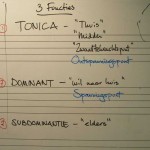 3 Functies
① TONICA - "Thuis"
"Midden"
"Zwaartekrachtpunt"
Ontspanningspunt
② DOMINANT - "wil naar huis"
Spanningspunt
③ SUBDOMINANTIE - "elders"